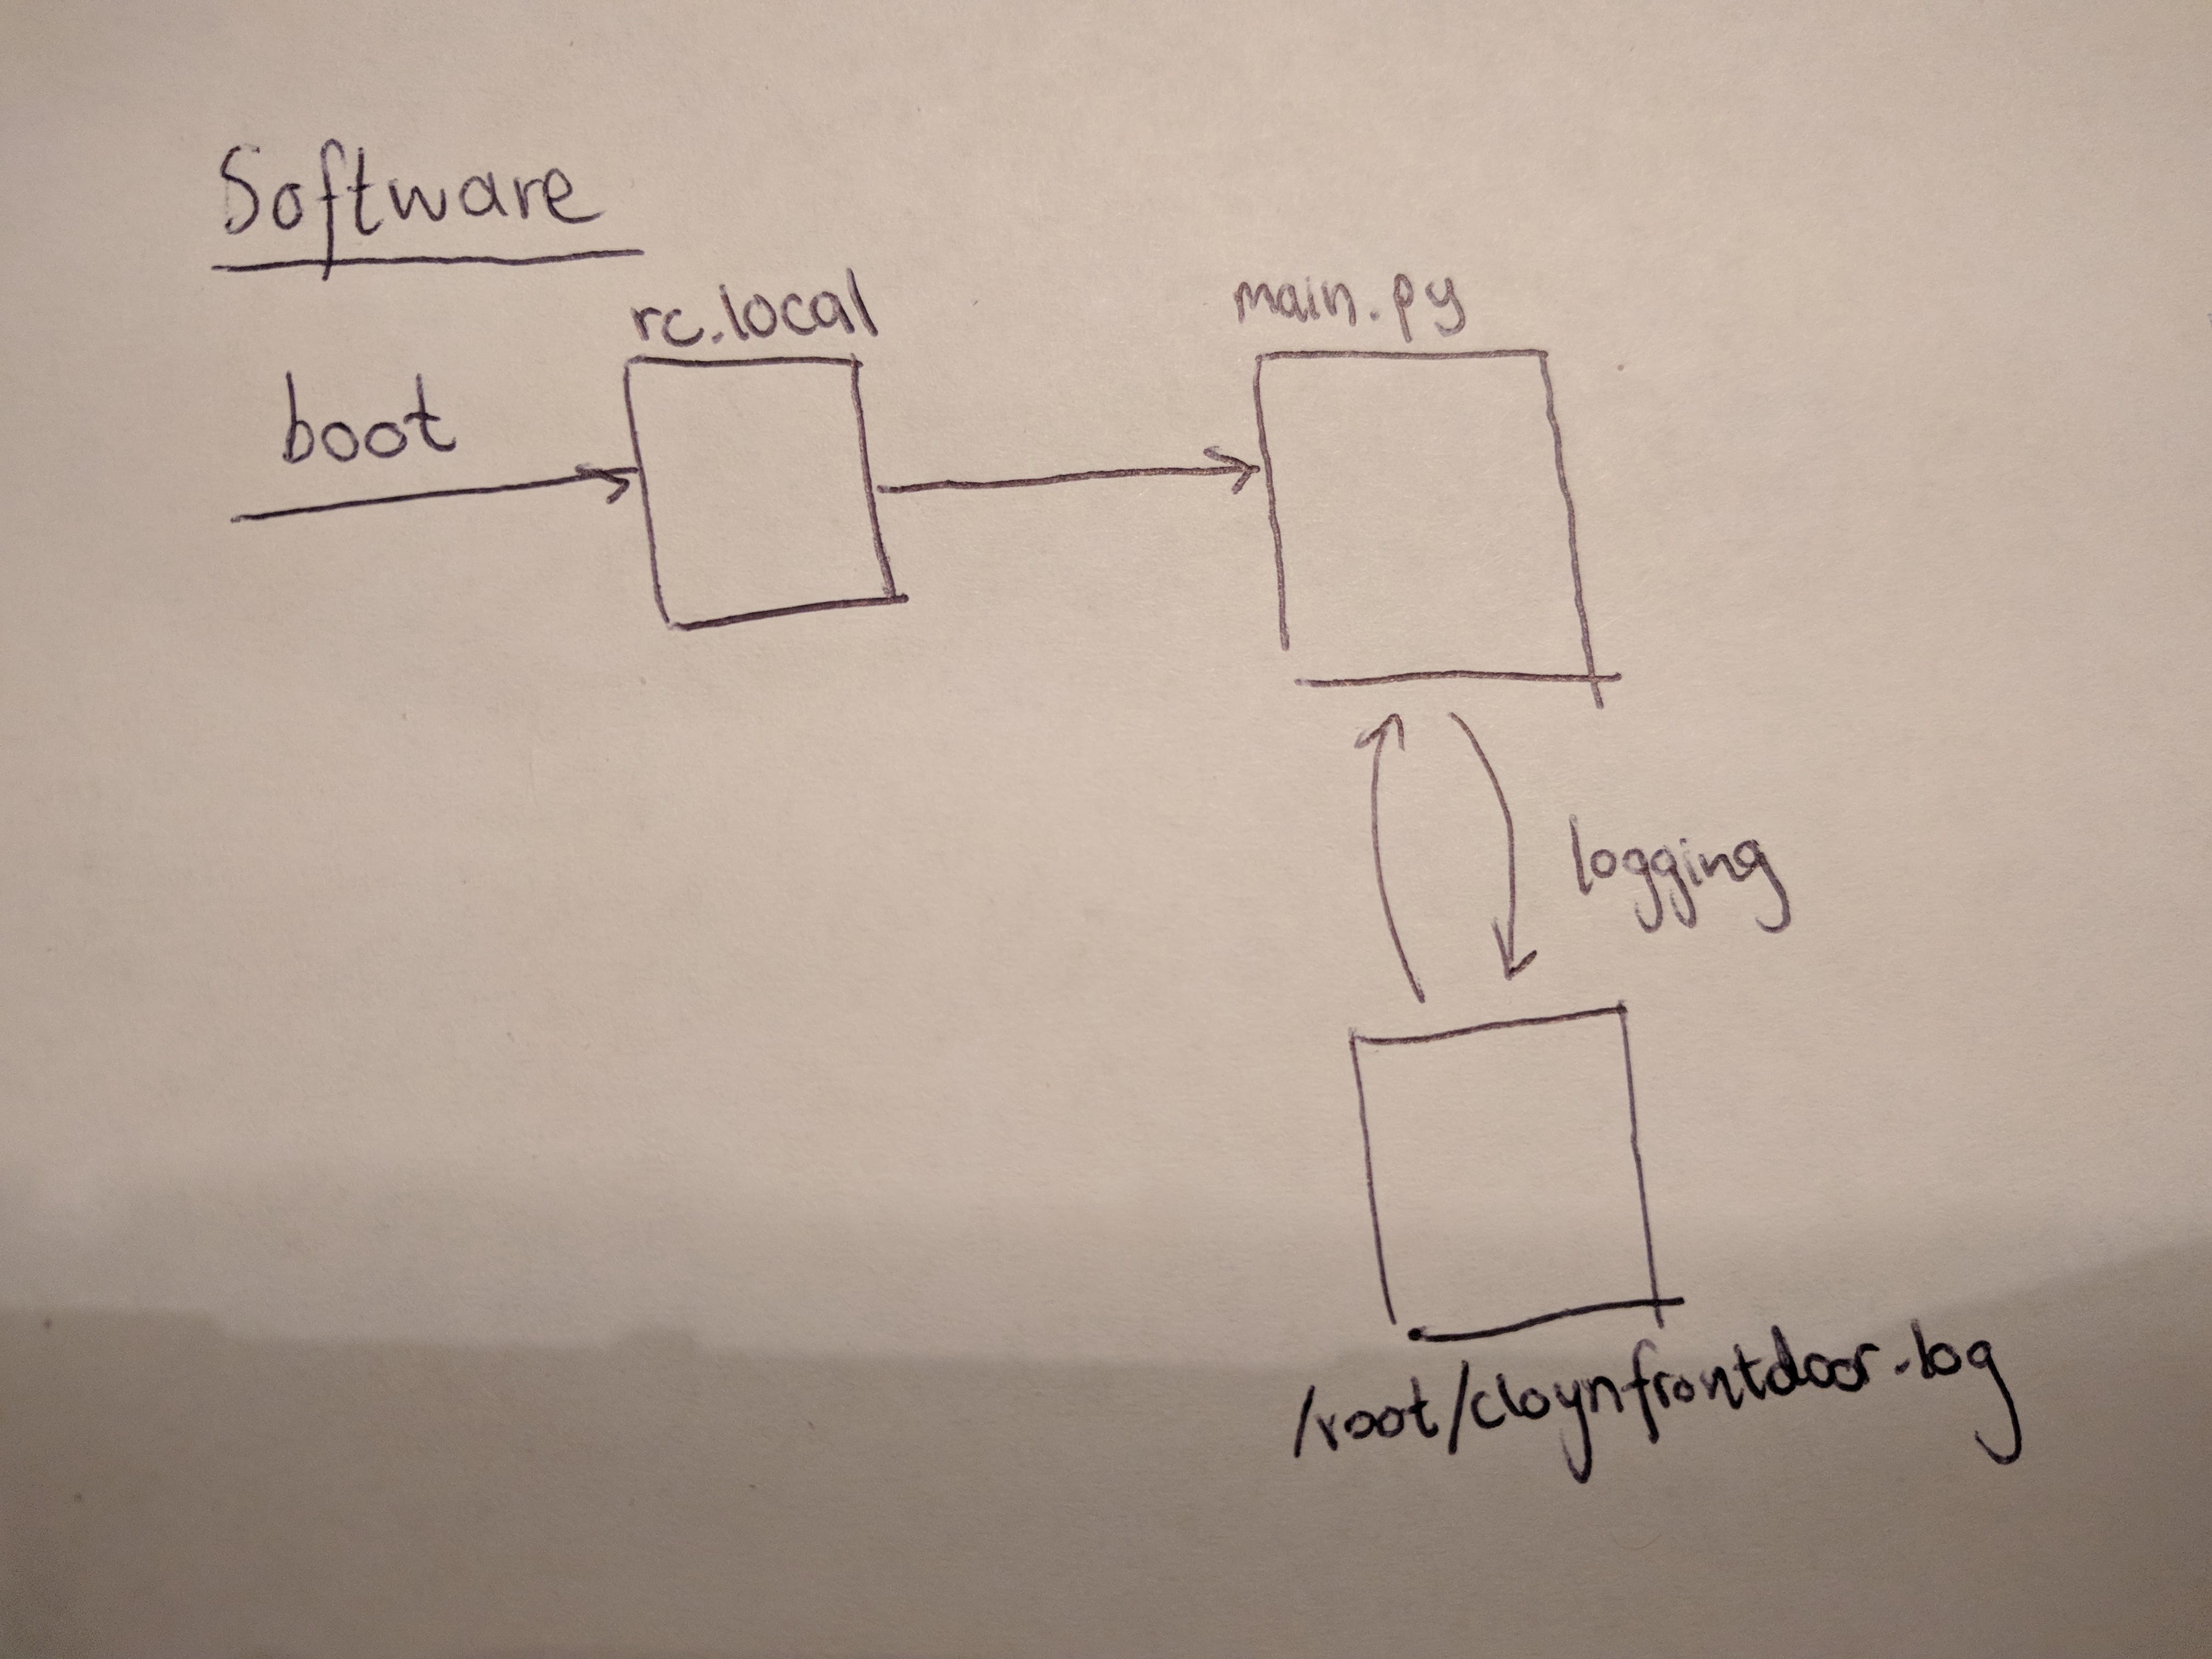 Software
rc.local
main.py
boot
logging
/root/cloynfrontdoor.log